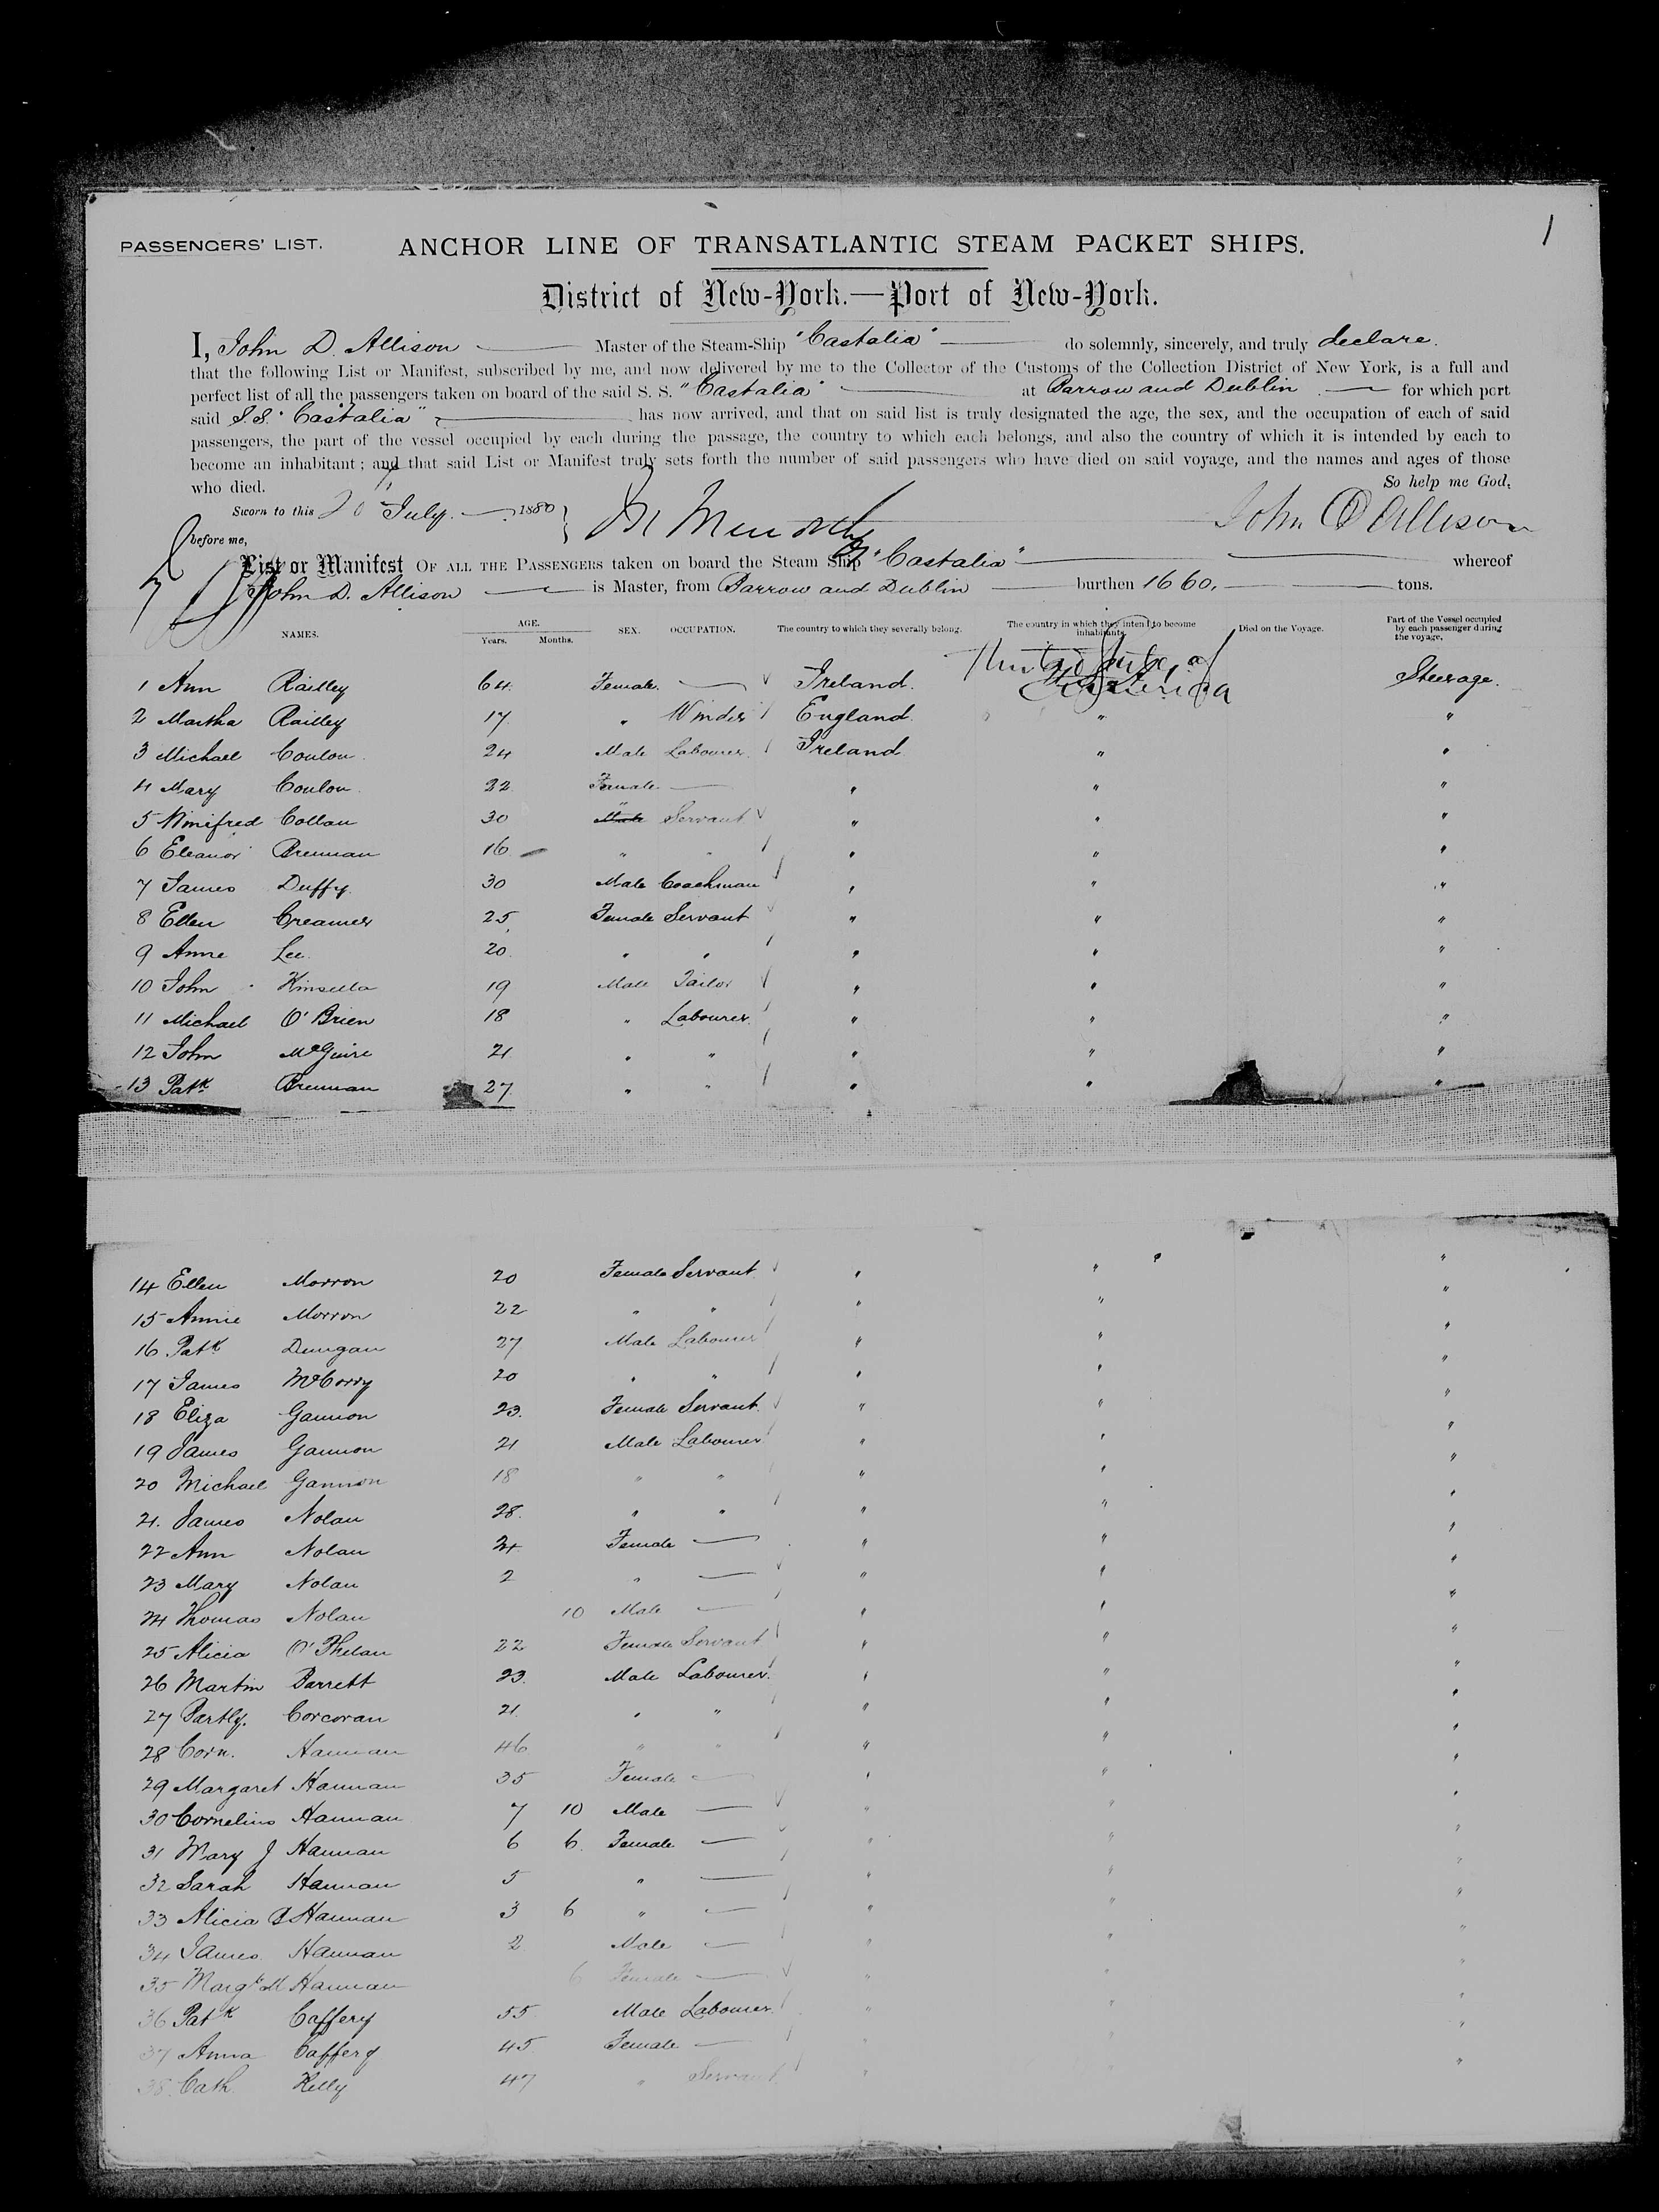 1
PASSENGERS' LIST.
ANCHOR LINE OF TRANSATLANTIC STEAM PACKET SHIPS.
District of New-York.—Port of New-York.
I, John D. Allison Master of the Steam-Ship "Castalia" do solemnly, sincerely, and truly declare.
that the following List or Manifest, subscribed by me, and now delivered by me to the Collector of the Customs of the Collection District of New York, is a full and
perfect list of all the passengers taken on board of the said S. S. "Castalia" at Barrow and Dublin for which port
said S.S. "Castalia" has now arrived, and that on said list is truly designated the age, the sex, and the occupation of each of said
passengers, the part of the vessel occupied by each during the passage, the country to which each belongs, and also the country of which it is intended by each to
become an inhabitant; and that said List or Manifest truly sets forth the number of said passengers who have died on said voyage, and the names and ages of those
who died. So help me God.
Sworn to this 20 July. 1880 John D Allison
before me,
List or Manifest OF ALL THE PASSENGERS taken on board the Steam Ship "Castalia" whereof
John D. Allison is Master, from Barrow and Dublin burthen 1660. tons.
NAMES. AGE. Years. Months. SEX. OCCUPATION. The country to which they severally belong. The country in which they intend to become inhabitants. Died on the Voyage. Part of the Vessel occupied by each passenger during the voyage.
1 Ann Railley 64 Female. — Ireland. United States of America Steerage.
2 Martha Railley 17 " Winder England. " "
3 Michael Conlon 24 Male Labourer. Ireland " "
4 Mary Conlon 22 Female — " " "
5 Winifred Collan 30 " Male Servant " " "
6 Eleanor Brennan 16 " " " " "
7 James Duffy 30 Male Coachman " " "
8 Ellen Creamer 25 Female Servant " " "
9 Anne Lee 20 " " " " "
10 John Kinsella 19 Male Tailor " " "
11 Michael O'Brien 18 " Labourer " " "
12 John McGuire 21 " " " " "
13 Patk Brennan 27 " " " " "
14 Ellen Morron 20 Female Servant " " "
15 Annie Morron 22 " " " " "
16 Patk Dungan 27 Male Labourer " " "
17 James McCorry 20 " " " " "
18 Eliza Gannon 23. Female Servant " " "
19 James Gannon 21 Male Labourer " " "
20 Michael Gannon 18 " " " " "
21. James Nolan 28. " " " " "
22 Ann Nolan 24 Female — " " "
23 Mary Nolan 2 " — " " "
24 Thomas Nolan 10 Male — " " "
25 Alicia O'Phelan 22 Female Servant " " "
26 Martin Barrett 23. Male Labourer. " " "
27 Bartly. Corcoran 21. " " " " "
28 Corn. Hannan 46 " " " " "
29 Margaret Hannan 35 Female — " " "
30 Cornelius Hannan 7 10 Male — " " "
31 Mary J Hannan 6 6 Female — " " "
32 Sarah Hannan 5 " — " " "
33 Alicia B Hannan 3 6 " — " " "
34 James Hannan 2 Male — " " "
35 Margt M Hannan 6 Female — " " "
36 Patk Caffery 55 Male Labourer " " "
37 Anna Caffery 45 Female — " " "
38 Cath. Kelly 47 " Servant " " "